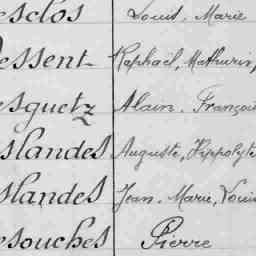 esclos Louis, Marie
essent Raphaël, Mathurin,
esguetz Alain, François
slandes Auguste, Hippolyte
slandes Jean, Marie, Louis
esouches Pierre